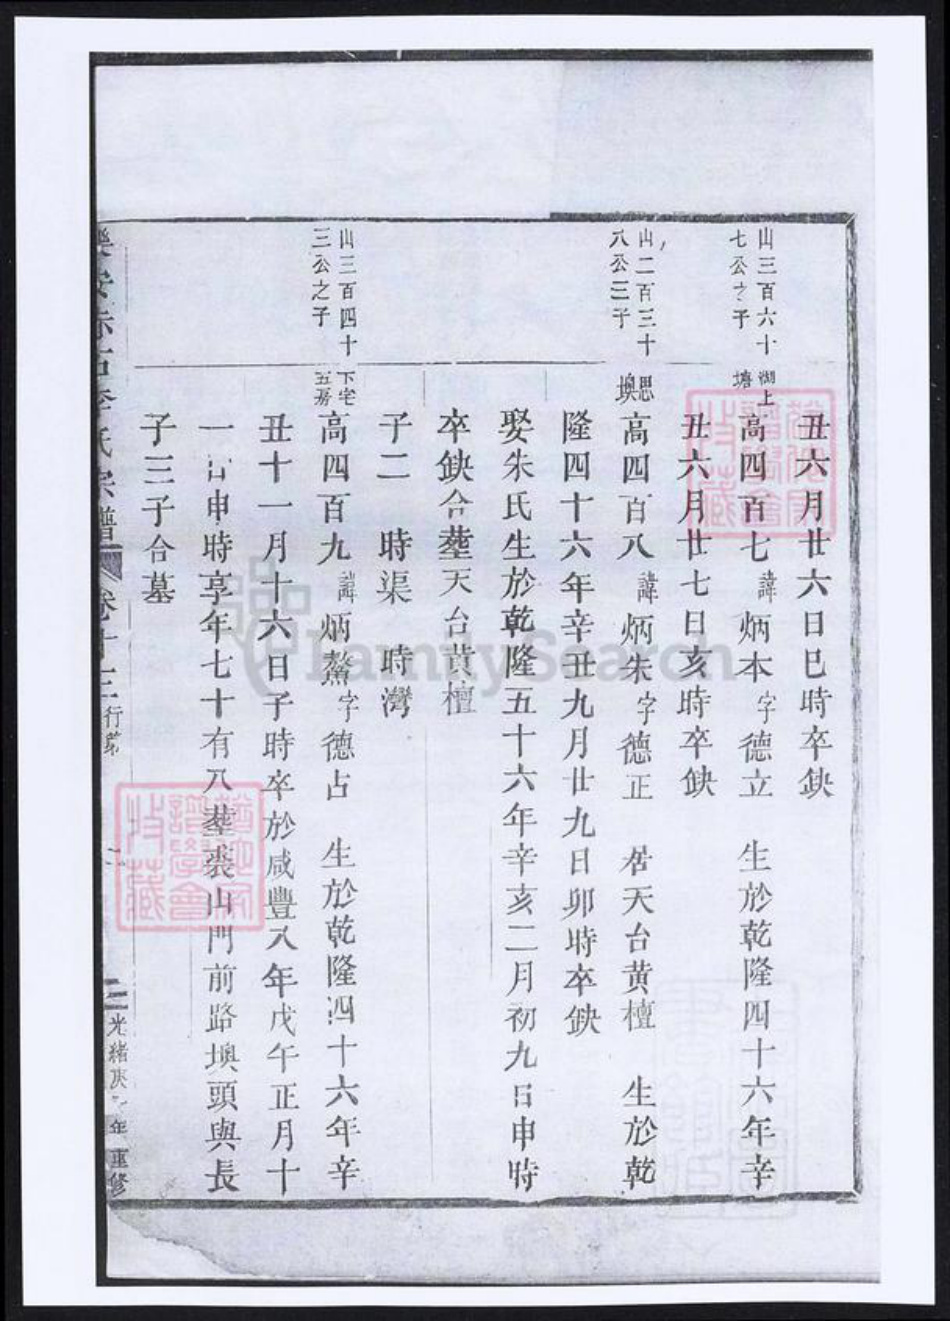 丑六月廿六日巳時卒缺
山三百六十
七公之子
湖上
塘
高四百七諱炳本字德立 生於乾隆四十六年辛
丑六月廿七日亥時卒缺
山二百三十
八公三子
思
塽
高四百八諱炳朱字德正 居天台黄檀 生於乾
隆四十六年辛丑九月廿九日卯時卒缺
娶朱氏生於乾隆五十六年辛亥二月初九日申時
卒缺合塟天台黄檀
子二 時渠 時灣
山三百四十
三公之子
下宅
五房
高四百九諱炳鰲字德占 生於乾隆四十六年辛
丑十一月十六日子時卒於咸豐八年戊午正月十
一日申時享年七十有八塟裘山門前路塽頭與長
子三子合墓
樂安 李氏宗譜 卷十三 行第
光緒庚 年重修
FamilySearch